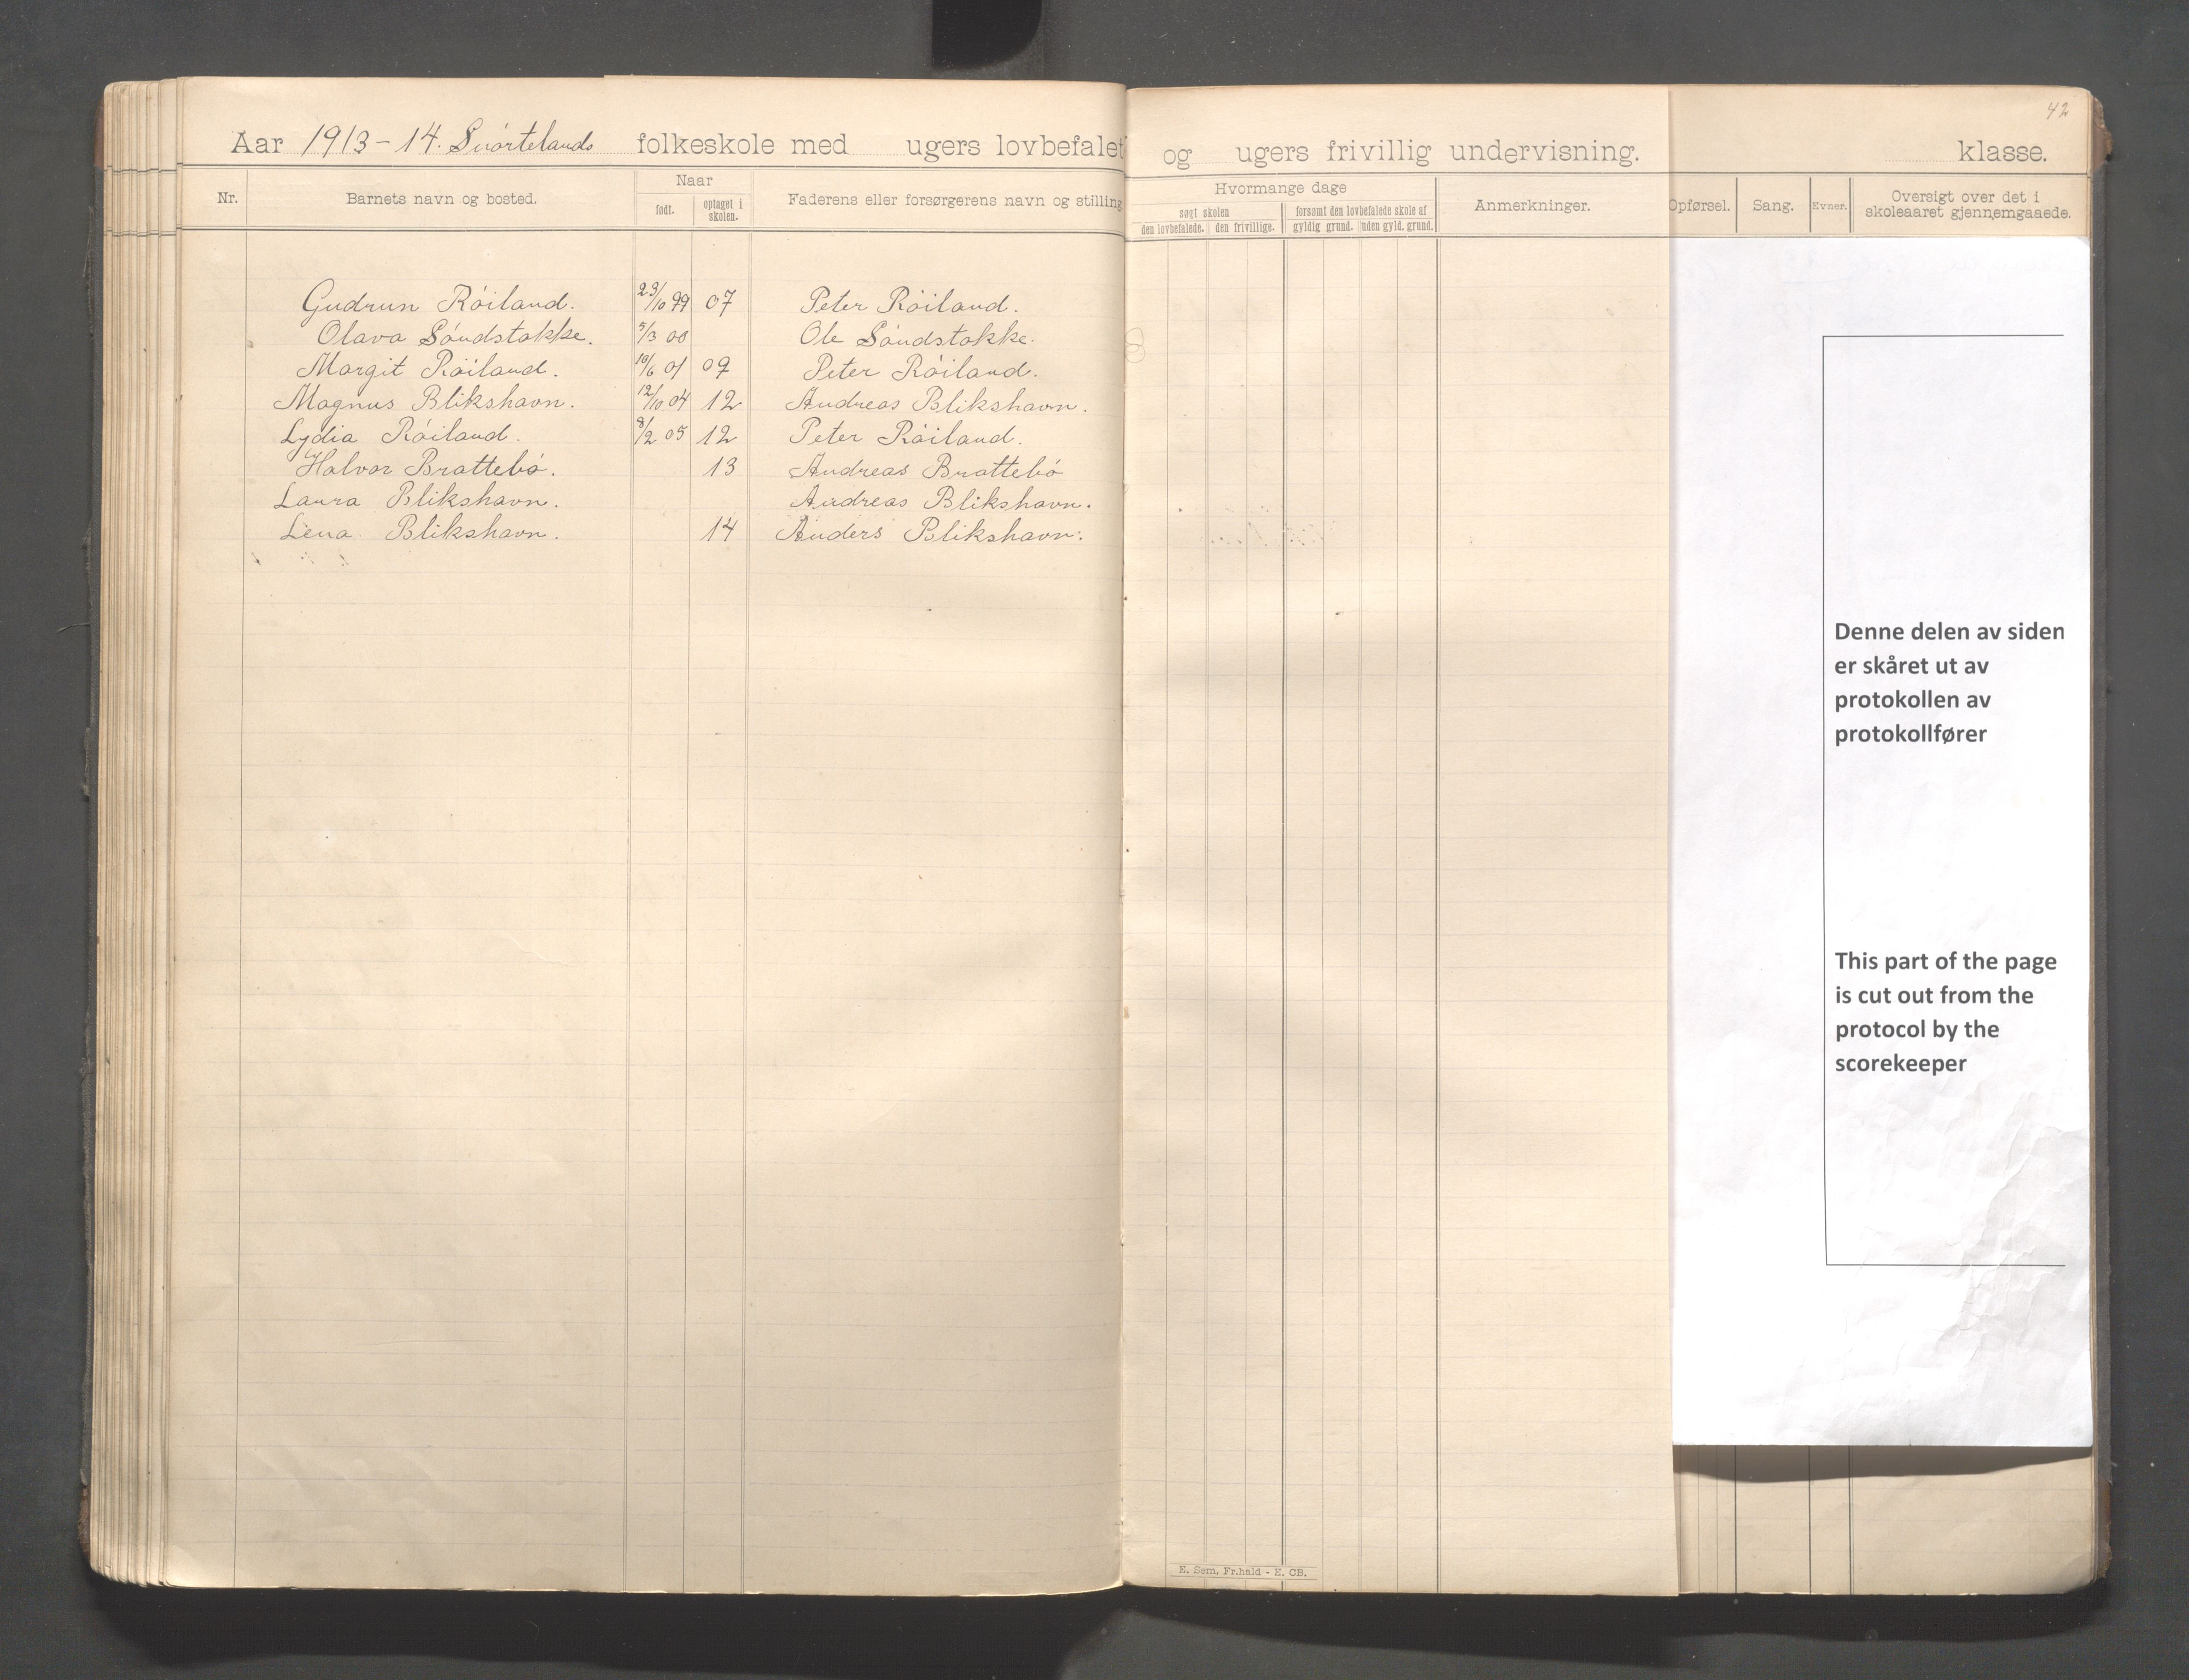 42
Aar 1913-14. Snørtelands folkeskole med ugers lovbefalet og ugers frivillig undervisning. klasse.
Nr. Barnets navn og bosted. Naar født. optaget i skolen. Faderens eller forsørgerens navn og stilling
Hvormange dage søgt skolen den lovbefalede. den frivillige. forsømt den lovbefalede skole af gyldig grund. uden gyld. grund. Anmerkninger. Opførsel. Sang. Evner. Oversigt over det i skoleaaret gjennemgaaede.
Gudrun Röiland. 23/10 99 07 Peter Röiland.
Olava Söndstakke. 5/3 00 Ole Söndstakke.
Margit Röiland. 10/6 01 09 Peter Röiland.
Magnus Blikshavn. 12/10 04 12 Andreas Blikshavn.
Lydia Röiland. 8/2 05 12 Peter Röiland.
Halvor Brattebö. 13 Andreas Brattebö
Laura Blikshavn. Andreas Blikshavn.
Lena Blikshavn. 14 Anders Blikshavn.
Denne delen av siden
er skåret ut av
protokollen av
protokollfører
This part of the page
is cut out from the
protocol by the
scorekeeper
E. Sem, Fr.hald - E. CB.